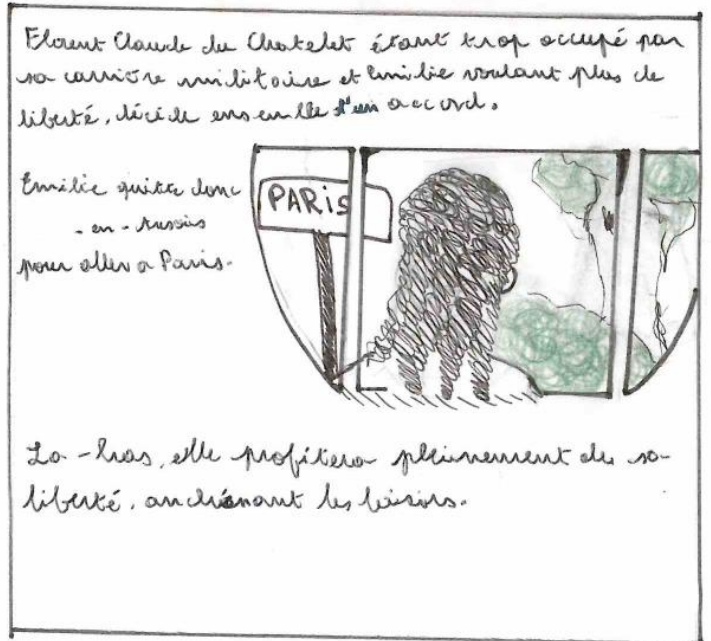 Florent Claude du Chatelet étant trop occupé par
sa carrière militaire et Emilie voulant plus de
liberté, décide ensemble d'un accord.
Emilie quitte donc
-en-
pour aller a Paris.
PARIS
La-bas, elle profitera pleinement de sa
liberté, anchénant les loisirs.